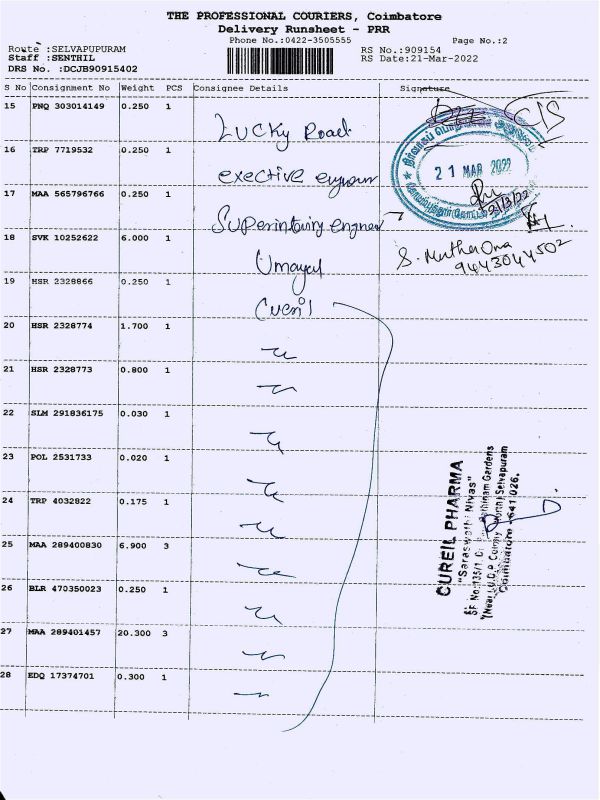 THE PROFESSIONAL COURIERS, Coimbatore
Delivery Runsheet - PRR
Phone No.:0422-3505555
Page No.:2
Route :SELVAPUPURAM
RS No.:909154
Staff :SENTHIL
RS Date:21-Mar-2022
DRS No. :DCJB90915402
S No Consignment No Weight PCS Consignee Details Signature
15 PNQ 303014149 0.250 1
Lucky Road
16 TRP 7719532 0.250 1
exective
21 MAR 2022
21/3/22
17 MAA 565796766 0.250 1
18 SVK 10252622 6.000 1
Umayal
S. Muthu
9443044502
19 HSR 2328866 0.250 1
20 HSR 2328774 1.700 1
21 HSR 2328773 0.800 1
22 SLM 291836175 0.030 1
23 POL 2531733 0.020 1
24 TRP 4032822 0.175 1
25 MAA 289400830 6.900 3
26 BLR 470350023 0.250 1
27 MAA 289401457 20.300 3
28 EDQ 17374701 0.300 1
CUREIL PHARMA
"Saraswathi Nivas"
SF No:135/1, Gardens
(Near U.D.A Colony Selvapuram
Coimbatore - 641 026.